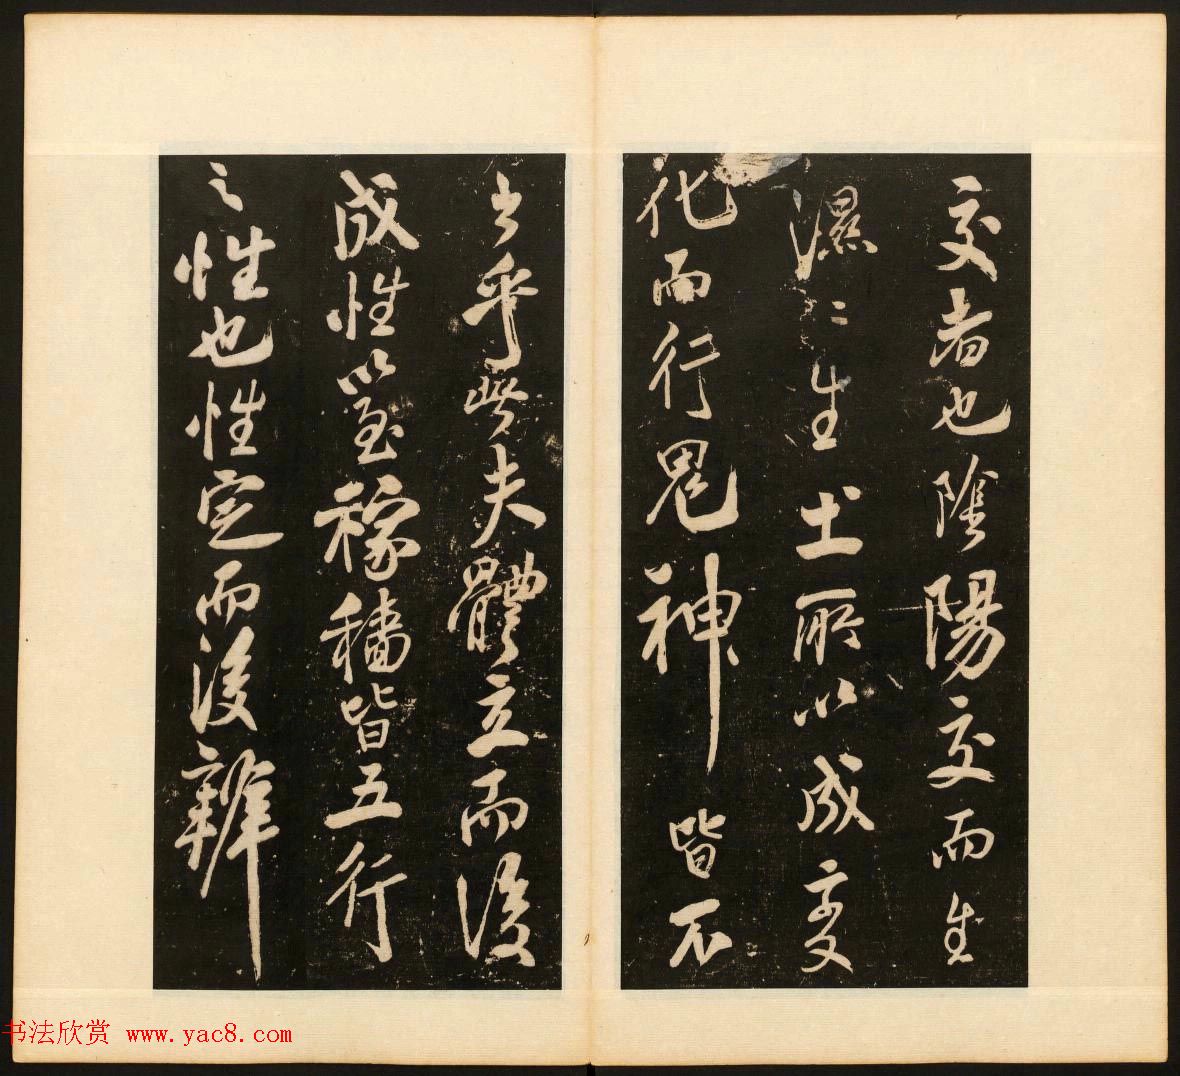 交者也陰陽交而生
濕〻生土所以成變
化而行鬼神皆不
出乎此夫體立而後
成性以至稼穡皆五行
之性也性定而後辨
书法欣赏 www.yac8.com